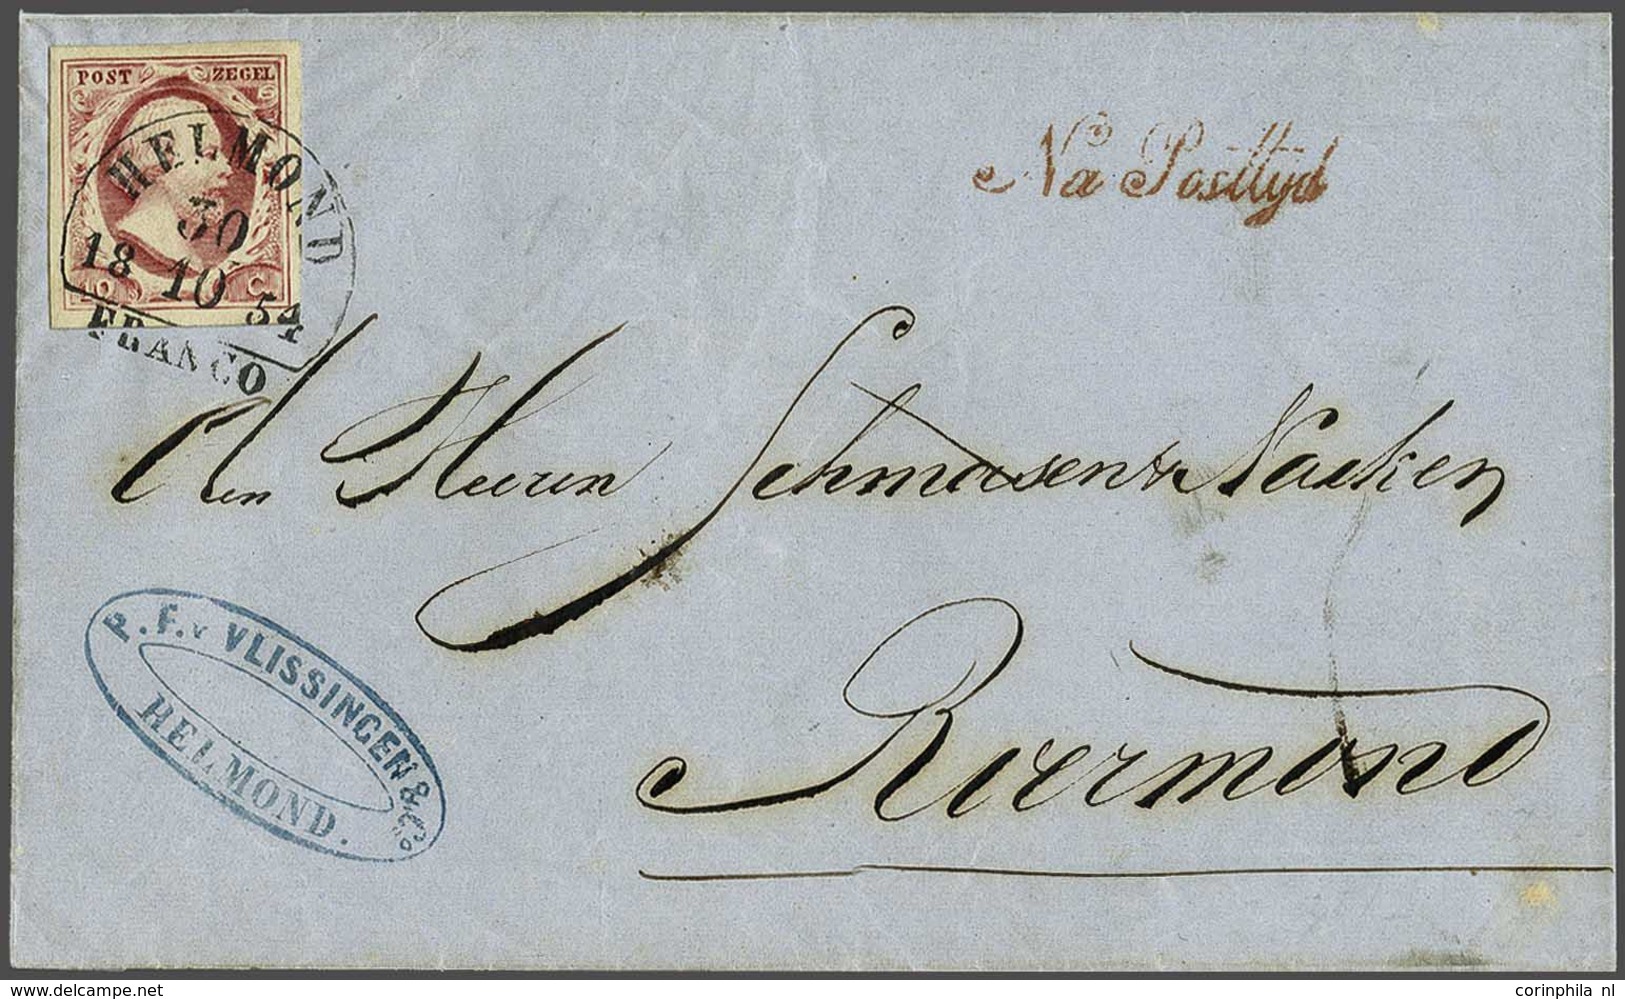 POST ZEGEL
10 C
HELMOND
30
18 10 54
FRANCO
Na Posttyd
Heeren Schmasen & Naeken
Roermond
P. F. v VLISSINGEN & Co
HELMOND.
www.delcampe.net
corinphila nl